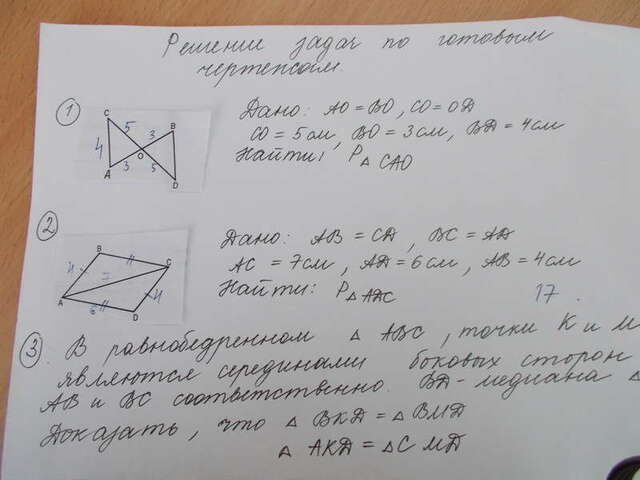 Решение задач по готовым
чертежам.
1
C
5
3
B
4
O
A
3
5
D
Дано: AO = BO, CO = OD
CO = 5 см, BO = 3 см, BD = 4 см
Найти: P△CAO
2
B
C
4
7
A
6
D
4
Дано: AB = CD, BC = AD
AC = 7 см, AD = 6 см, AB = 4 см
Найти: P△ADC
17.
3. В равнобедренном △ ABC, точки K и M
являются серединами боковых сторон
AB и BC соответственно. BD - медиана △
Доказать, что △ BKD = △ BMD
△ AKD = △ CMD